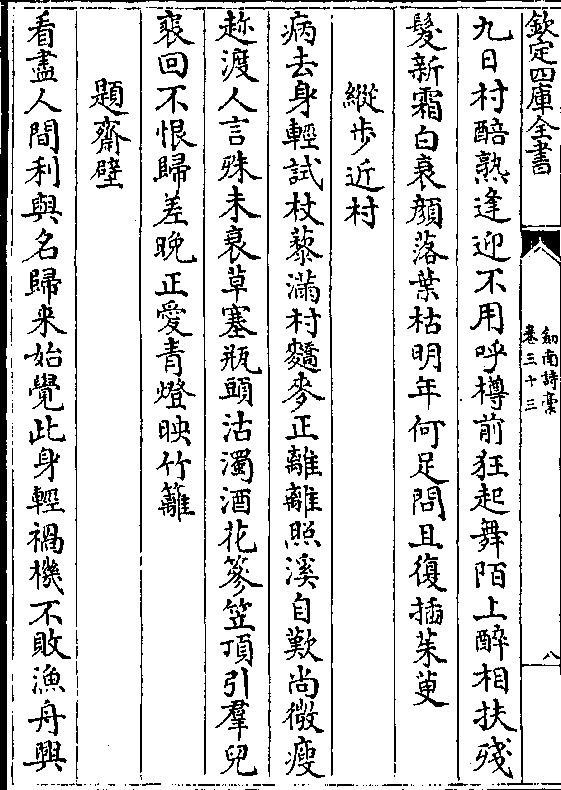 欽定四庫全書
劍南詩稾
卷三十三
八
九日村醅熟逢迎不用呼樽前狂起舞陌上醉相扶殘
髮新霜白衰顔落葉枯明年何足問且復插茱萸
縱步近村
病去身輕試杖藜滿村蕎麥正離離照溪自歎尚微瘦
趂渡人言殊未衰草塞瓶頭沽濁酒花篸笠頂引羣兒
裵回不恨歸差晚正愛青燈映竹籬
題齋壁
看盡人間利與名歸来始覺此身輕禍機不敗漁舟興